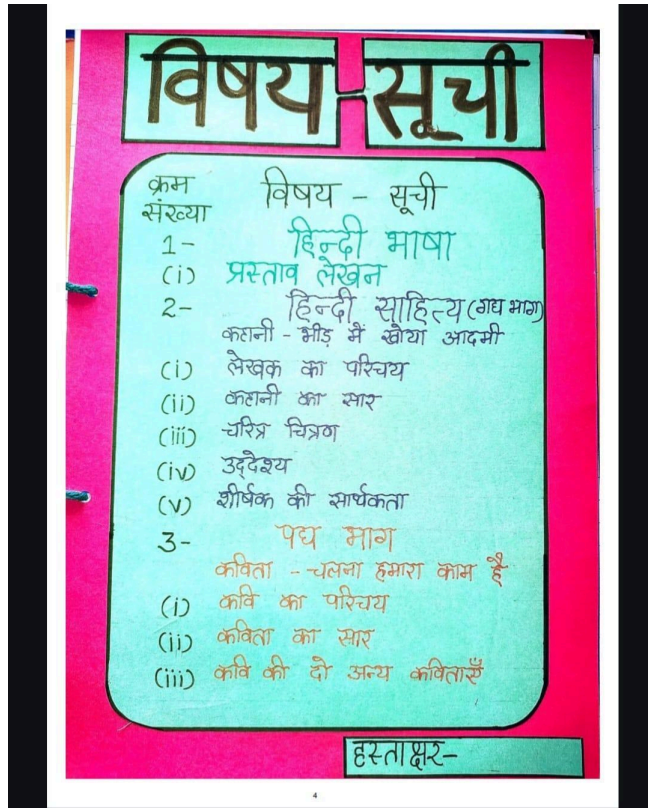 विषय-सूची
क्रम संख्या विषय - सूची
1- हिन्दी भाषा
(i) प्रस्ताव लेखन
2- हिन्दी साहित्य (गद्य भाग)
कहानी - भीड़ में खोया आदमी
(i) लेखक का परिचय
(ii) कहानी का सार
(iii) चरित्र चित्रण
(iv) उद्देश्य
(v) शीर्षक की सार्थकता
3- पद्य भाग
कविता - चलना हमारा काम है
(i) कवि का परिचय
(ii) कविता का सार
(iii) कवि की दो अन्य कविताएँ
हस्ताक्षर-
4